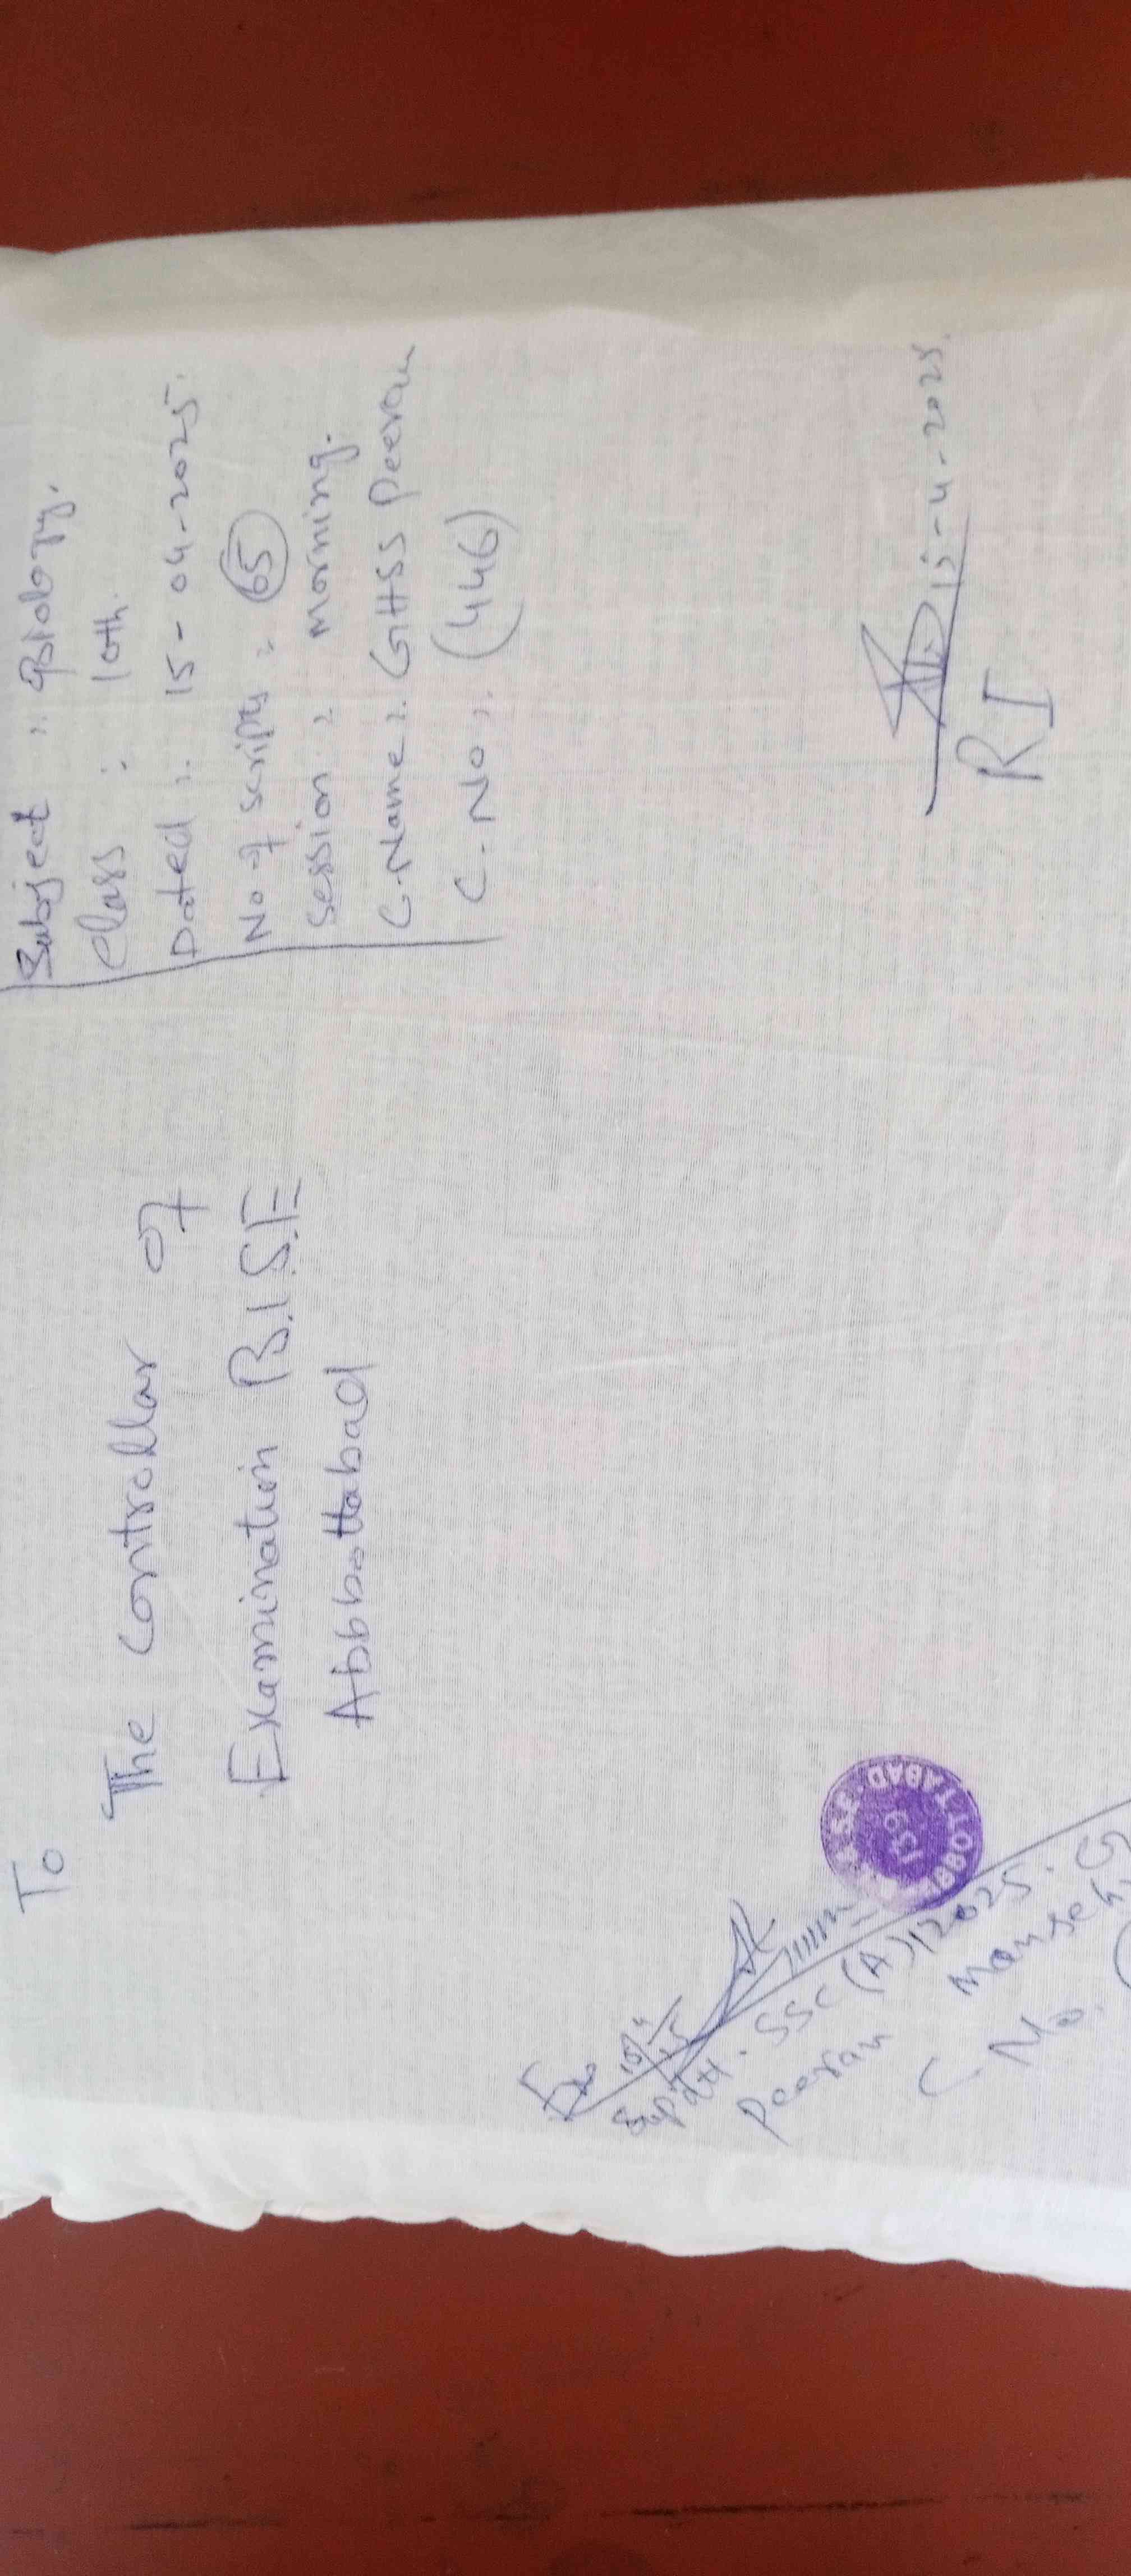 To
The Controllar of
Examination B.I.S.E
Abbbottabad
Subject : Biology.
Class : 10th.
Dated : 15-04-2025.
No of scripts : 65
Session : Morning.
C-Name : GHSS Peeran
C. No : (446)
15-4-2025.
RI
Supdtt. SSC (A) 2025. G
Peeran Manseh
C No. (
139
ABBOTTABAD